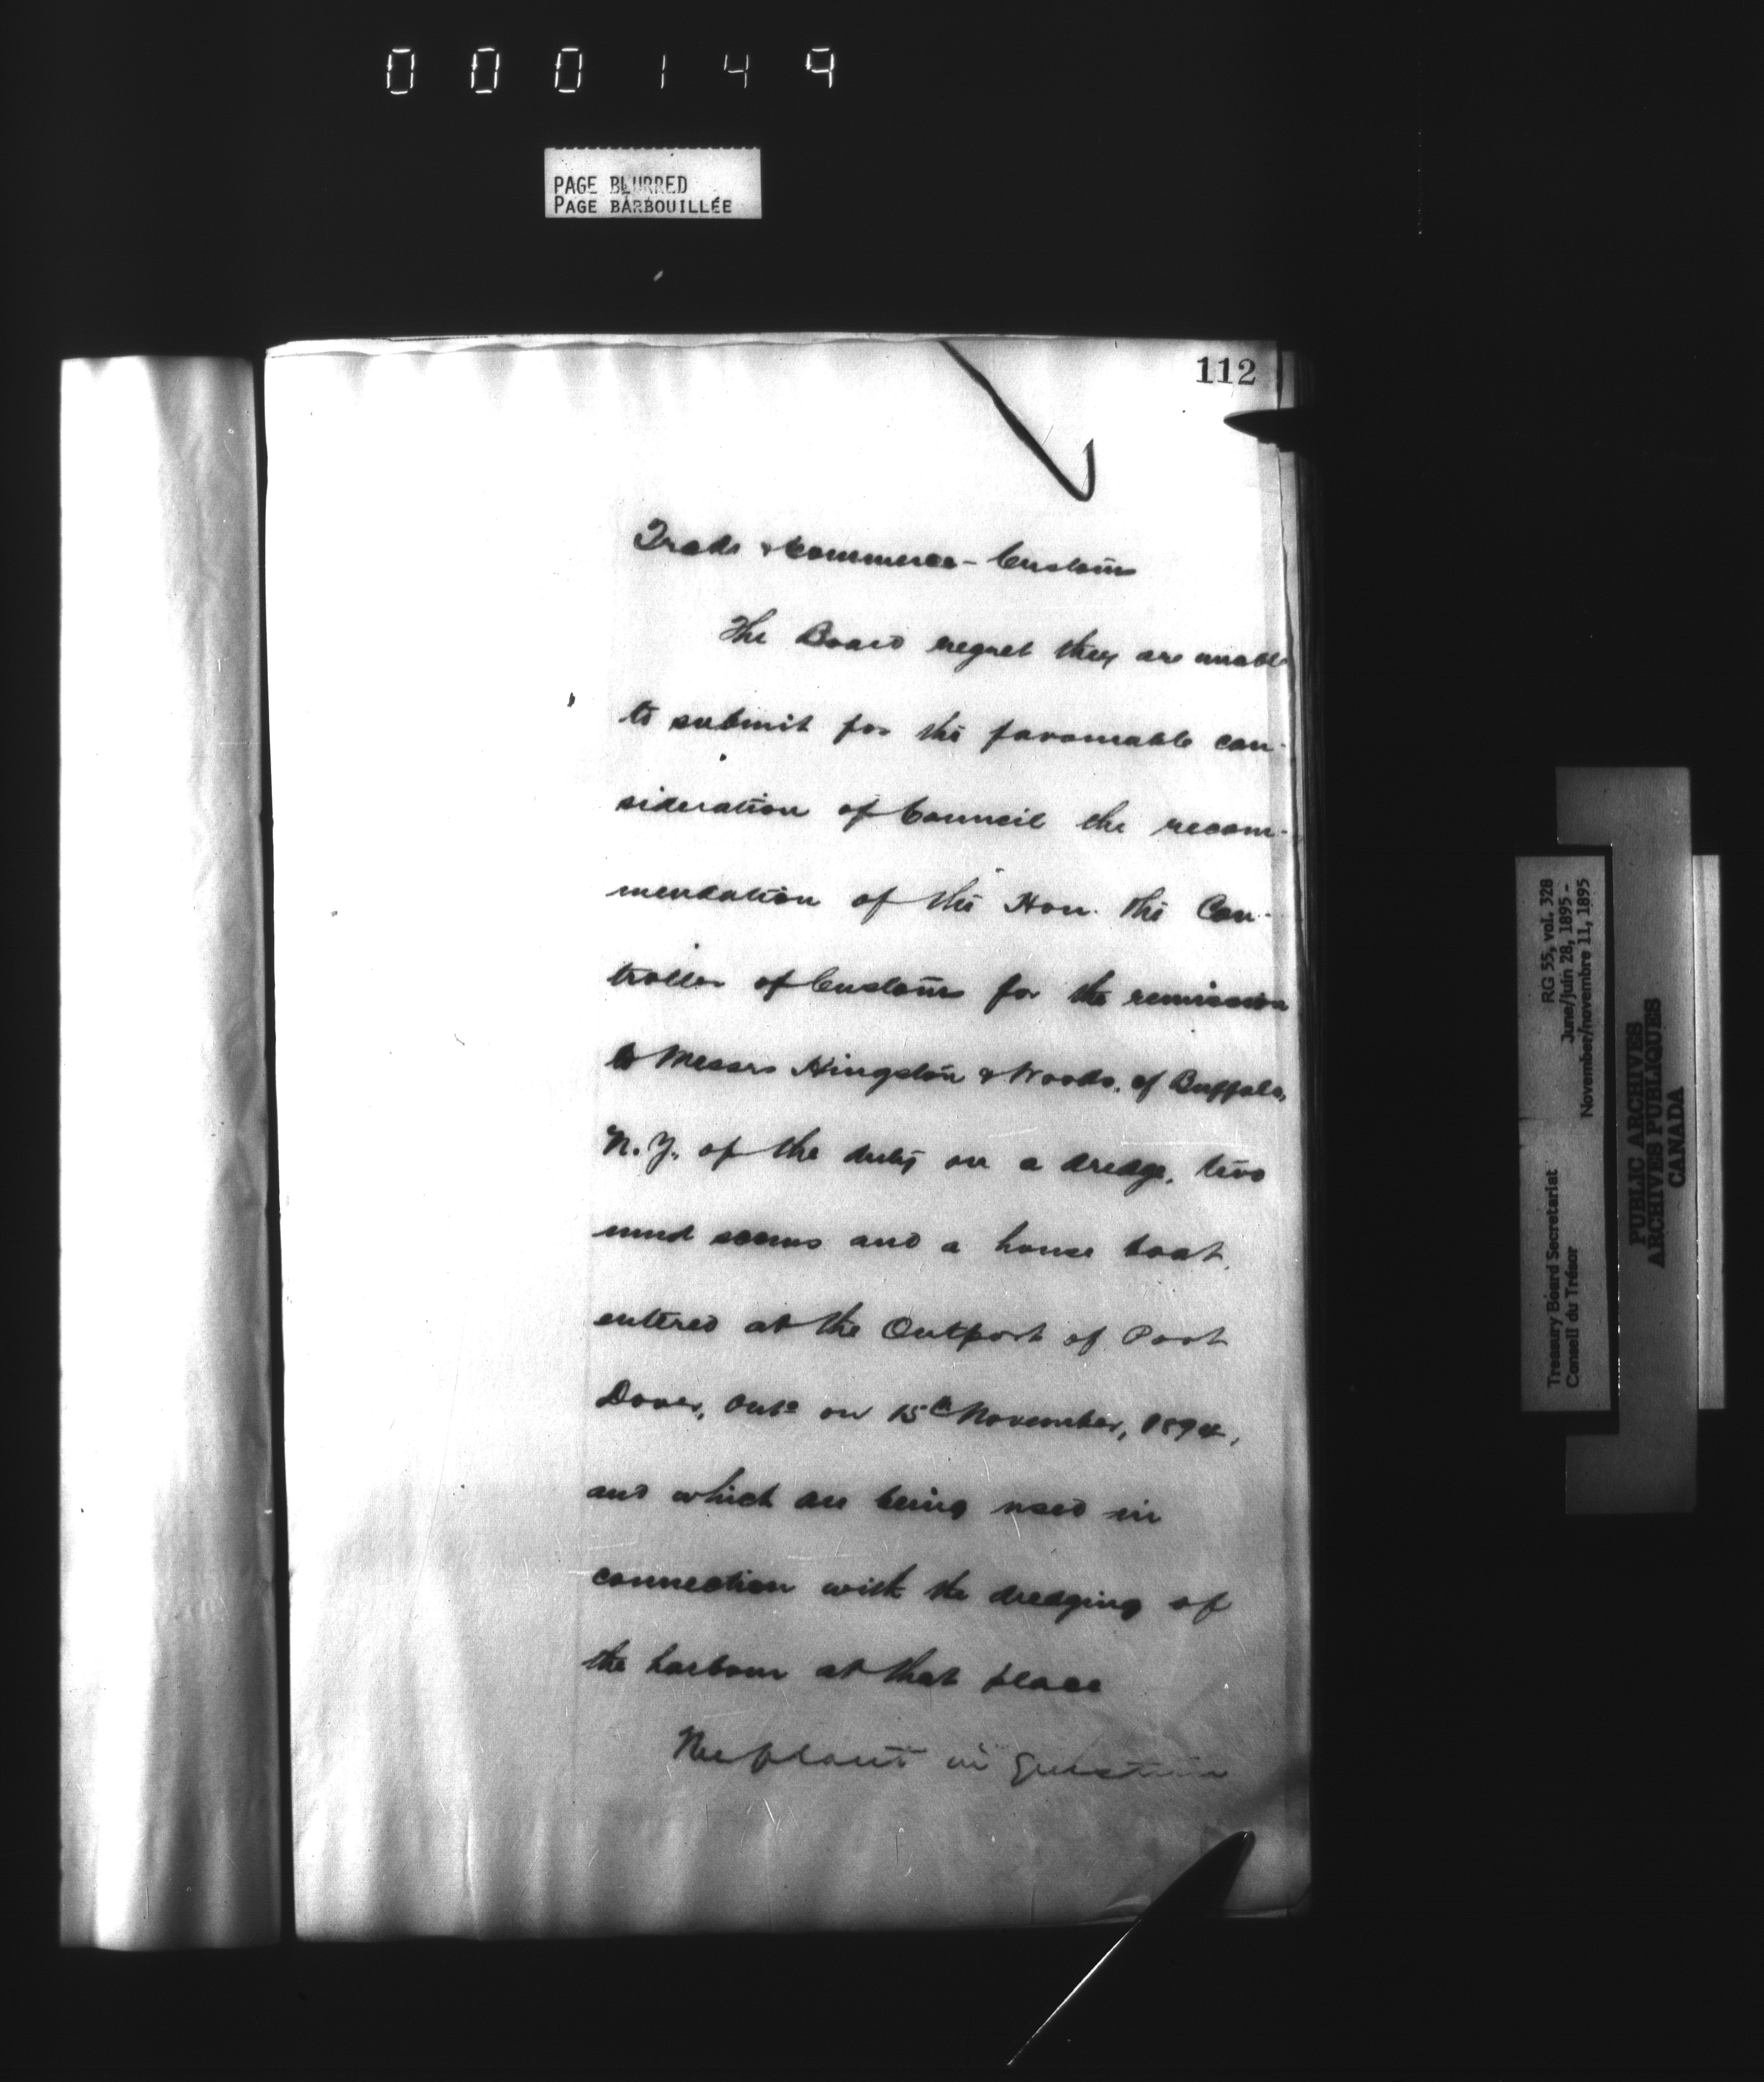 000149
PAGE BLURRED
PAGE BARBOUILLÉE
112
Trade & Commerce - Customs
The Board regret they are unable
to submit for the favourable con-
sideration of Council the recom-
mendation of the Hon. the Con-
troller of Customs for the remission
to Messrs Hingston & Woods, of Buffalo,
N.Y. of the duty on a dredge, two
mud scows and a house boat,
entered at the Outport of Port
Dover, Onto on 15th November, 1894,
and which are being used in
connection with the dredging of
the harbour at that place
The plant in question
Treasury Board Secretariat RG 55, vol. 328
Conseil du Trésor June/juin 28, 1895 -
November/novembre 11, 1895
PUBLIC ARCHIVES
ARCHIVES PUBLIQUES
CANADA